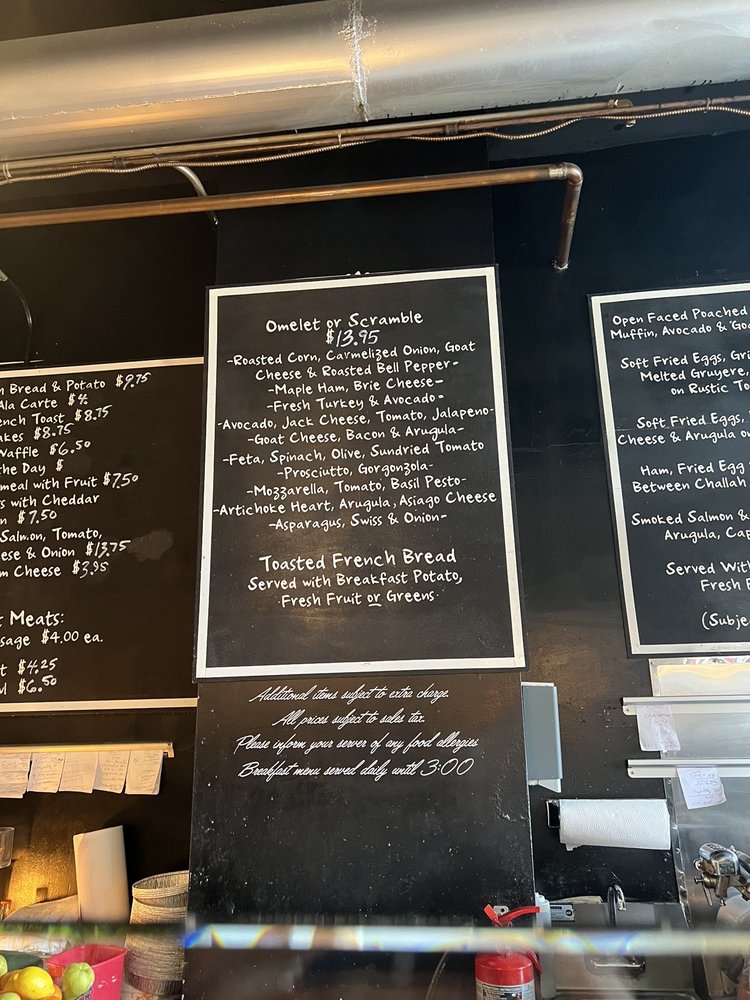 Bread & Potato $9.75
Ala Carte $4
French Toast $8.75
$8.75
Waffle $6.50
the Day $
with Fruit $7.50
with Cheddar
$7.50
Salmon, Tomato,
& Onion $13.75
Cheese $3.95
Meats:
$4.00 ea.
$4.25
$6.50
Omelet or Scramble
$13.95
-Roasted Corn, Carmelized Onion, Goat
Cheese & Roasted Bell Pepper-
-Maple Ham, Brie Cheese-
-Fresh Turkey & Avocado-
-Avocado, Jack Cheese, Tomato, Jalapeno-
-Goat Cheese, Bacon & Arugula-
-Feta, Spinach, Olive, Sundried Tomato
-Prosciutto, Gorgonzola-
-Mozzarella, Tomato, Basil Pesto-
-Artichoke Heart, Arugula, Asiago Cheese
-Asparagus, Swiss & Onion-
Toasted French Bread
Served with Breakfast Potato,
Fresh Fruit or Greens
Additional items subject to extra charge.
All prices subject to sales tax.
Please inform your server of any food allergies
Breakfast menu served daily until 3:00
Open Faced Poached
Muffin, Avocado &
Soft Fried Eggs,
Melted Gruyere,
on Rustic
Soft Fried Eggs,
Cheese & Arugula
Ham, Fried Egg
Between Challah
Smoked Salmon &
Arugula,
Served With
Fresh